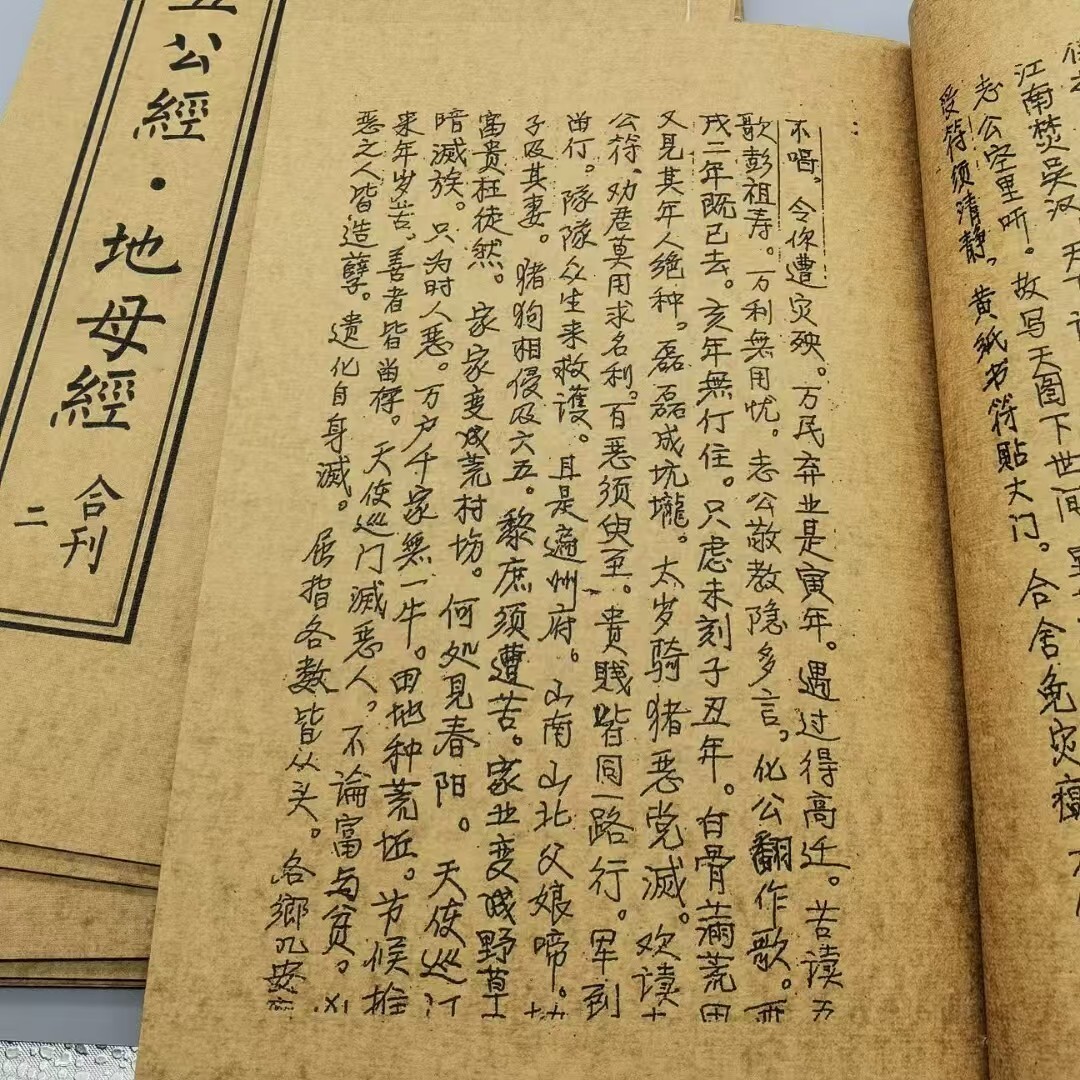 江南焚吴汉
志公空里听。故写天图下世间
受符须清静。黄纸书符贴大门。合舍免灾
不唱。令你遭灾殃。万民弃业是寅年。遇过得高迁。苦读五
歌彭祖寿。万利無用忧。志公敬教隐多言。化公翻作歌。
戌二年既已去。亥年無行住。只虑未刻子丑年。白骨满荒田
又见其年人绝种。磊磊成坑壠。太岁骑猪恶党灭。欢读
公符。劝君莫用求名利。百恶须臾至。贵贱皆同一路行。军到
当行。隊隊众生来救護。且是遍州府。山南山北父娘啼。
子及其妻。猪狗相侵及六五。黎庶须遭苦。家业变成野草
富贵枉徒然。家家变成荒村坊。何处见春阳。天使巡门
暗滅族。只为时人恶。万户千家無一牛。田地种荒坵。节候推
来年岁苦。善者皆当存。天使巡门滅恶人。不論富与贫。
恶之人皆造孽。遗化自身滅。屈指各数皆从头。各鄉
五公經·地母經
合刊
二